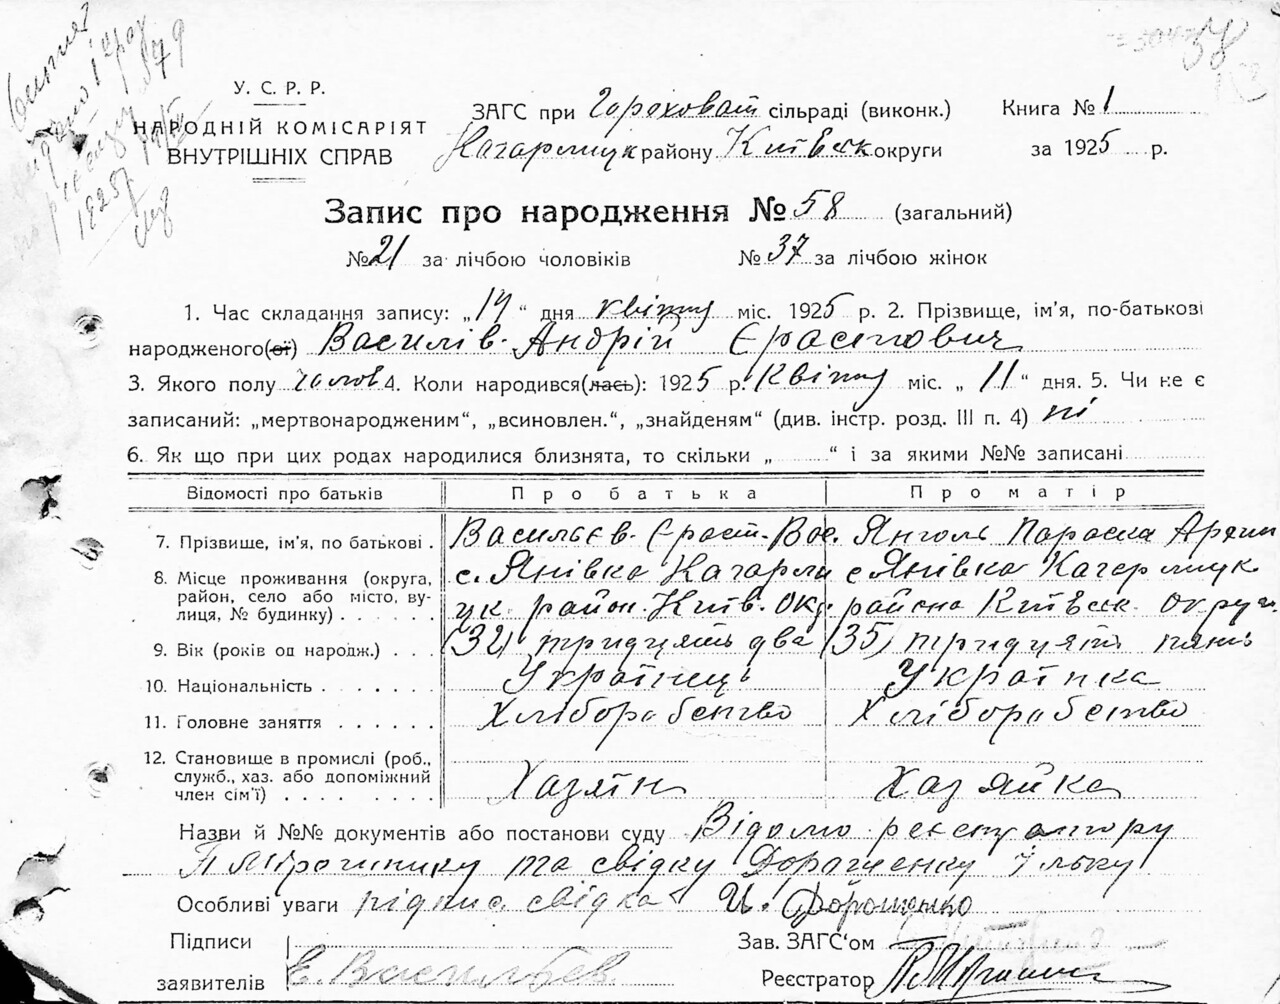 У. С. Р. Р.
НАРОДНІЙ КОМІСАРІЯТ
ВНУТРІШНІХ СПРАВ
ЗАГС при Гороховат сільраді (виконк.)
Кагарлицк району Київськ округи
Книга № 1
за 1925 р.
Запис про народження № 58 (загальний)
№ 21 за лічбою чоловіків № 37 за лічбою жінок
1. Час складання запису: „14“ дня квітня міс. 1925 р. 2. Прізвище, ім'я, по-батькові
народженого(ої) Василів. Андрій Єрастович
3. Якого полу чолов 4. Коли народився(лась): 1925 р. Квітня міс. „11“ дня. 5. Чи не є
записаний: „мертвонародженим“, „всиновлен.“, „знайденям“ (див. інстр. розд. III п. 4) ні
6. Як що при цих родах народилися близнята, то скільки „ “ і за якими №№ записані
Відомості про батьків Про батька Про матір
7. Прізвище, ім'я, по батькові . Васильєв. Єраст. Вас. Янголь Параска
8. Місце проживання (округа, с. Янівка Кагарли с Янівка Кагерлицк.
район, село або місто, ву- цк. район. Київ. окр. района Київськ. округи.
лиця, № будинку) . . . . .
9. Вік (років од народж.) . . . (32) тридцять два (35) тридцять пять
10. Національність . . . . . . . Українець Українка
11. Головне заняття . . . . . . Хліборобство Хліборобство
12. Становище в промислі (роб.,
служб., хаз. або допоміжний Хазяїн Хазяйка
член сім'ї) . . . . . . . .
Назви й №№ документів або постанови суду Відомо реєстратору
П Мірошнику та свідку Дорошенку Ільку
Особливі уваги підпис свідка И. Дорошенко
Підписи
заявителів Е. Васильев.
Зав. ЗАГС'ом
Реєстратор